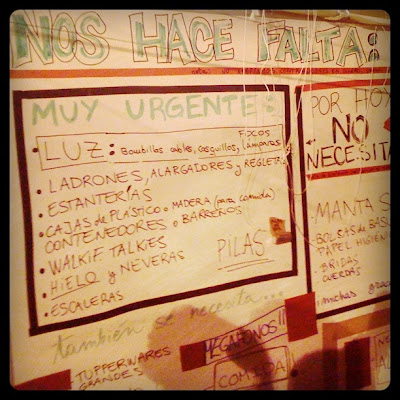 NOS HACE FALTA:
MUY URGENTE:
LUZ: Bombillas cables, casquillos, lámparas, FOCOS
• LADRONES, ALARGADORES y REGLETAS
• ESTANTERÍAS
• CAJAS de PLÁSTICO o MADERA (para comida)
CONTENEDORES o BARREÑOS
• WALKIE TALKIES
• HIELO y NEVERAS
PILAS
• ESCALERAS
POR HOY
NO
NECESITA
- MANTAS
- BOLSAS de BAS
PAPEL HIGIEN
- BRIDAS
CUERDAS
muchas grac
también se necesita...
TUPPERWARES
GRANDES
MEGÁFONOS!!
COMIDA